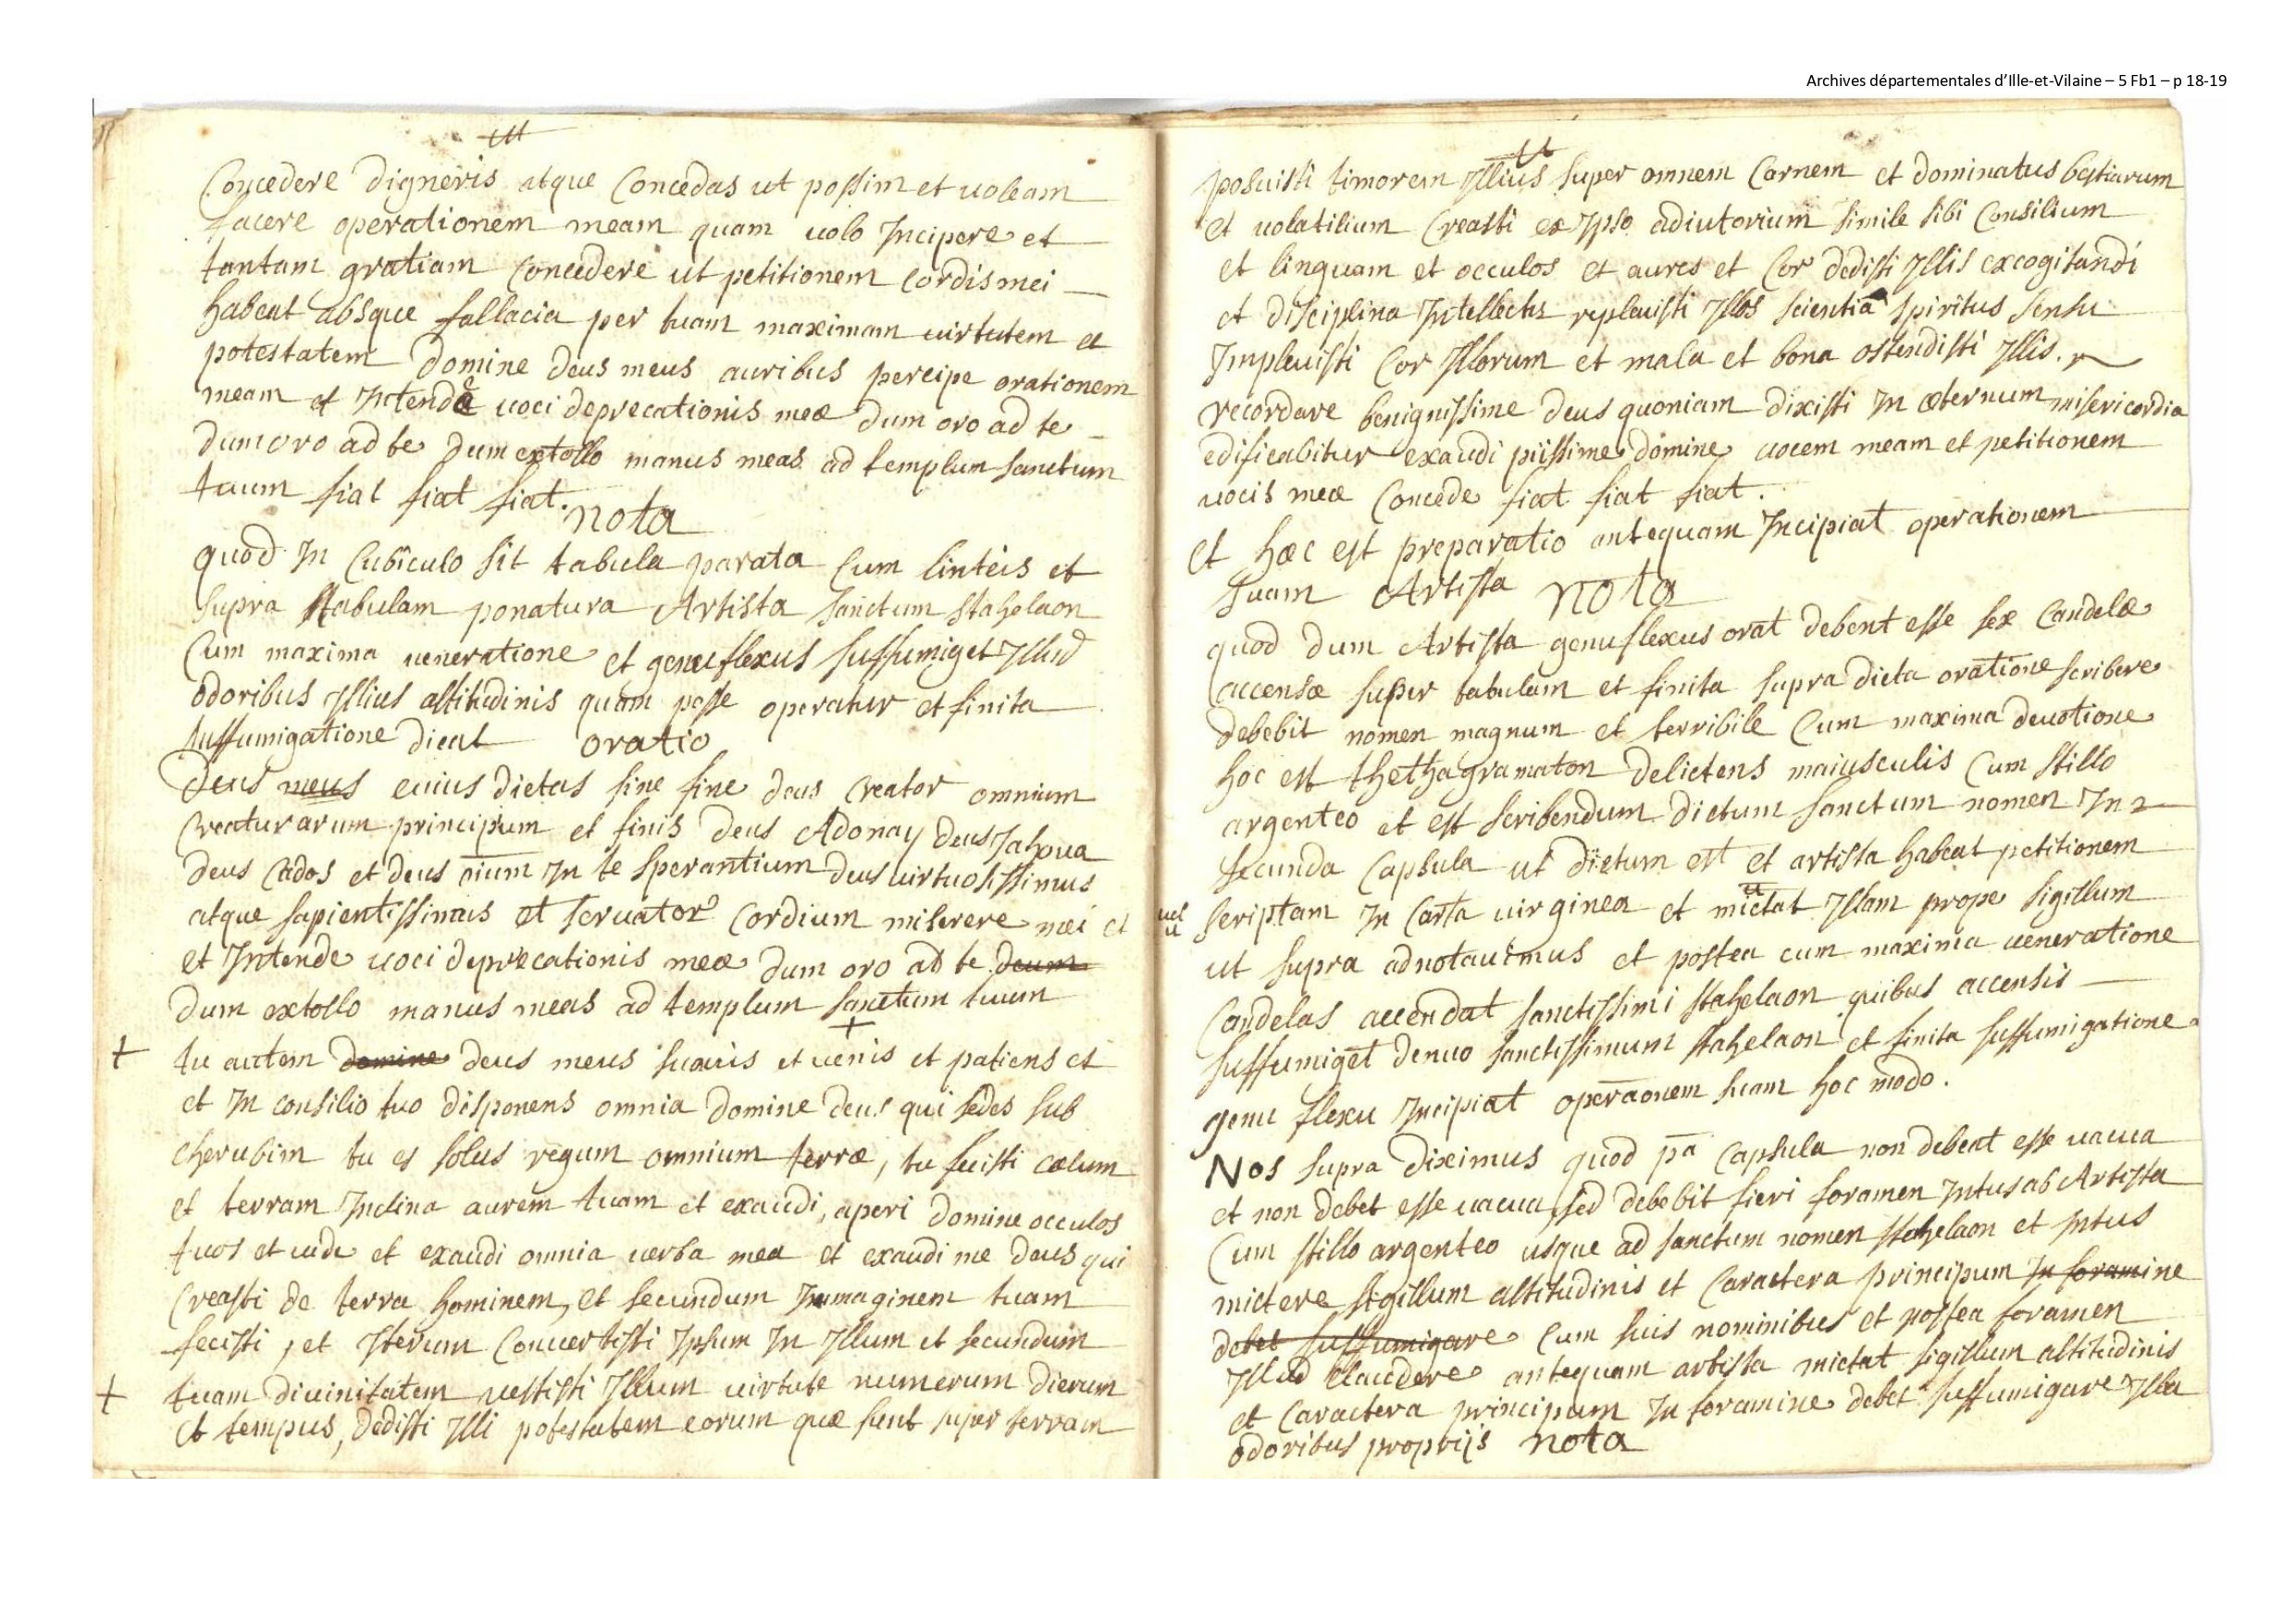 Archives départementales d'Ille-et-Vilaine – 5 Fb1 – p 18-19
Concedere digneris atque Concedas ut possim et ualeam
facere operationem meam quam uolo Incipere et
tantam gratiam Concedere ut petitionem Cordis mei
habeat absque fallacia per tuam maximam uirtutem et
potestatem domine deus meus auribus percipe orationem
meam et Intende uoci deprecationis meæ dum oro ad te
dum oro ad te dum extollo manus meas ad templum sanctum
tuum fiat fiat fiat.
nota
quod In Cubiculo sit tabula parata Cum linteis et
supra tabulam ponatura Artista sanctum stahelaon
Cum maxima ueneratione et genuflexus suffumiget Illud
odoribus Illius altitudinis quam posse operatur et finita
suffumigatione dicat oratio
Deus meus cuius dietas sine fine deus Creator omnium
Creaturarum principium et finis deus Adonay deus Jahoua
deus Cados et deus oium In te sperantium deus uirtuosissimus
atque sapientissimus et seruator Cordium miserere mei et
et Intende uoci deprecationis meæ dum oro ad te deum
dum extollo manus meas ad templum sanctum tuum
+
+ tu autem domine deus meus suauis et uenis et patiens et
et In consilio tuo disponens omnia domine deus qui sedes sub
cherubim tu es solus regum omnium terræ, tu fuisti cælum
et terram Inclina aurem tuam et exaudi, aperi domine occulos
tuos et uide et exaudi omnia uerba mea et exaudi me deus qui
Creasti de terra hominem, et secundum Immaginem tuam
fecisti, et Iterum Conuertisti Ipsum In Illum et secundum
+ tuam diuinitatem uestisti Illum uirtute numerum dierum
et tempus, dedisti Illi potestatem eorum quæ sunt super terram
posuisti timorem Illius super omnem Carnem et dominatus bestiarum
et uolatilium Creasti ex Ipso adiutorium simile sibi Consilium
et linguam et occulos et aures et Cor dedisti Illis excogitandi
et disciplina Intellectus repleuisti Illos scientia spiritus sensu
Impleuisti Cor Illorum et mala et bona ostendisti Illis.
recordare benignissime deus quoniam dixisti In æternum misericordia
edificabitur exaudi piissime domine uocem meam et petitionem
uocis meæ Concede fiat fiat fiat.
et hæc est preparatio antequam Incipiat operationem
suam Artista nota
quod dum Artista genuflexus orat debent esse sex Candelæ
accensæ super tabulam et finita supra dicta oratione scribere
debebit nomen magnum et terribile Cum maxima deuotione
hoc est thethagramaton delictens maiusculis Cum stillo
argenteo et est scribendum dictum sanctum nomen In 2
secunda Capsula ut dictum est et artista habeat petitionem
uel
scriptam In Carta uirginea et mictat Illam prope sigillum
ut supra adnotauimus et postea cum maxima ueneratione
Candelas accendat sanctissimi stahelaon quibus accensis
suffumiget denuo sanctissimum stahelaon et finita suffumigatione
genu flexu Incipiat operaonem suam hoc modo.
Nos supra diximus quod pa Capsula non debeat esse uacua
et non debet esse uacua sed debebit fieri foramen Intus ab Artista
Cum stillo argenteo usque ad sanctum nomen stahelaon et Intus
mictere sigillum altitudinis et Caractera principum In foramine
debet suffumigare Cum suis nominibus et postea foramen
Illud Claudere antequam artista mictat sigillum altitudinis
et Caractera principum In foramine debet suffumigare Illa
odoribus proprijs nota